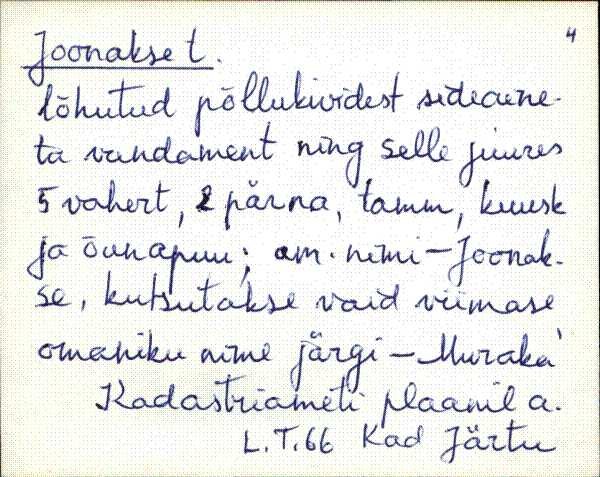 4
Joonakse t.
lõhutud põllukividest sideaine-
ta vundament ning selle juures
5 vahert, 2 pärna, tamm, kuusk
ja õunapuu; am. nimi - Joonak-
se, kutsutakse vaid viimase
omaniku nime järgi - Muraka
Kadastriameti plaanil a.
L.T.66 Kad Järtu